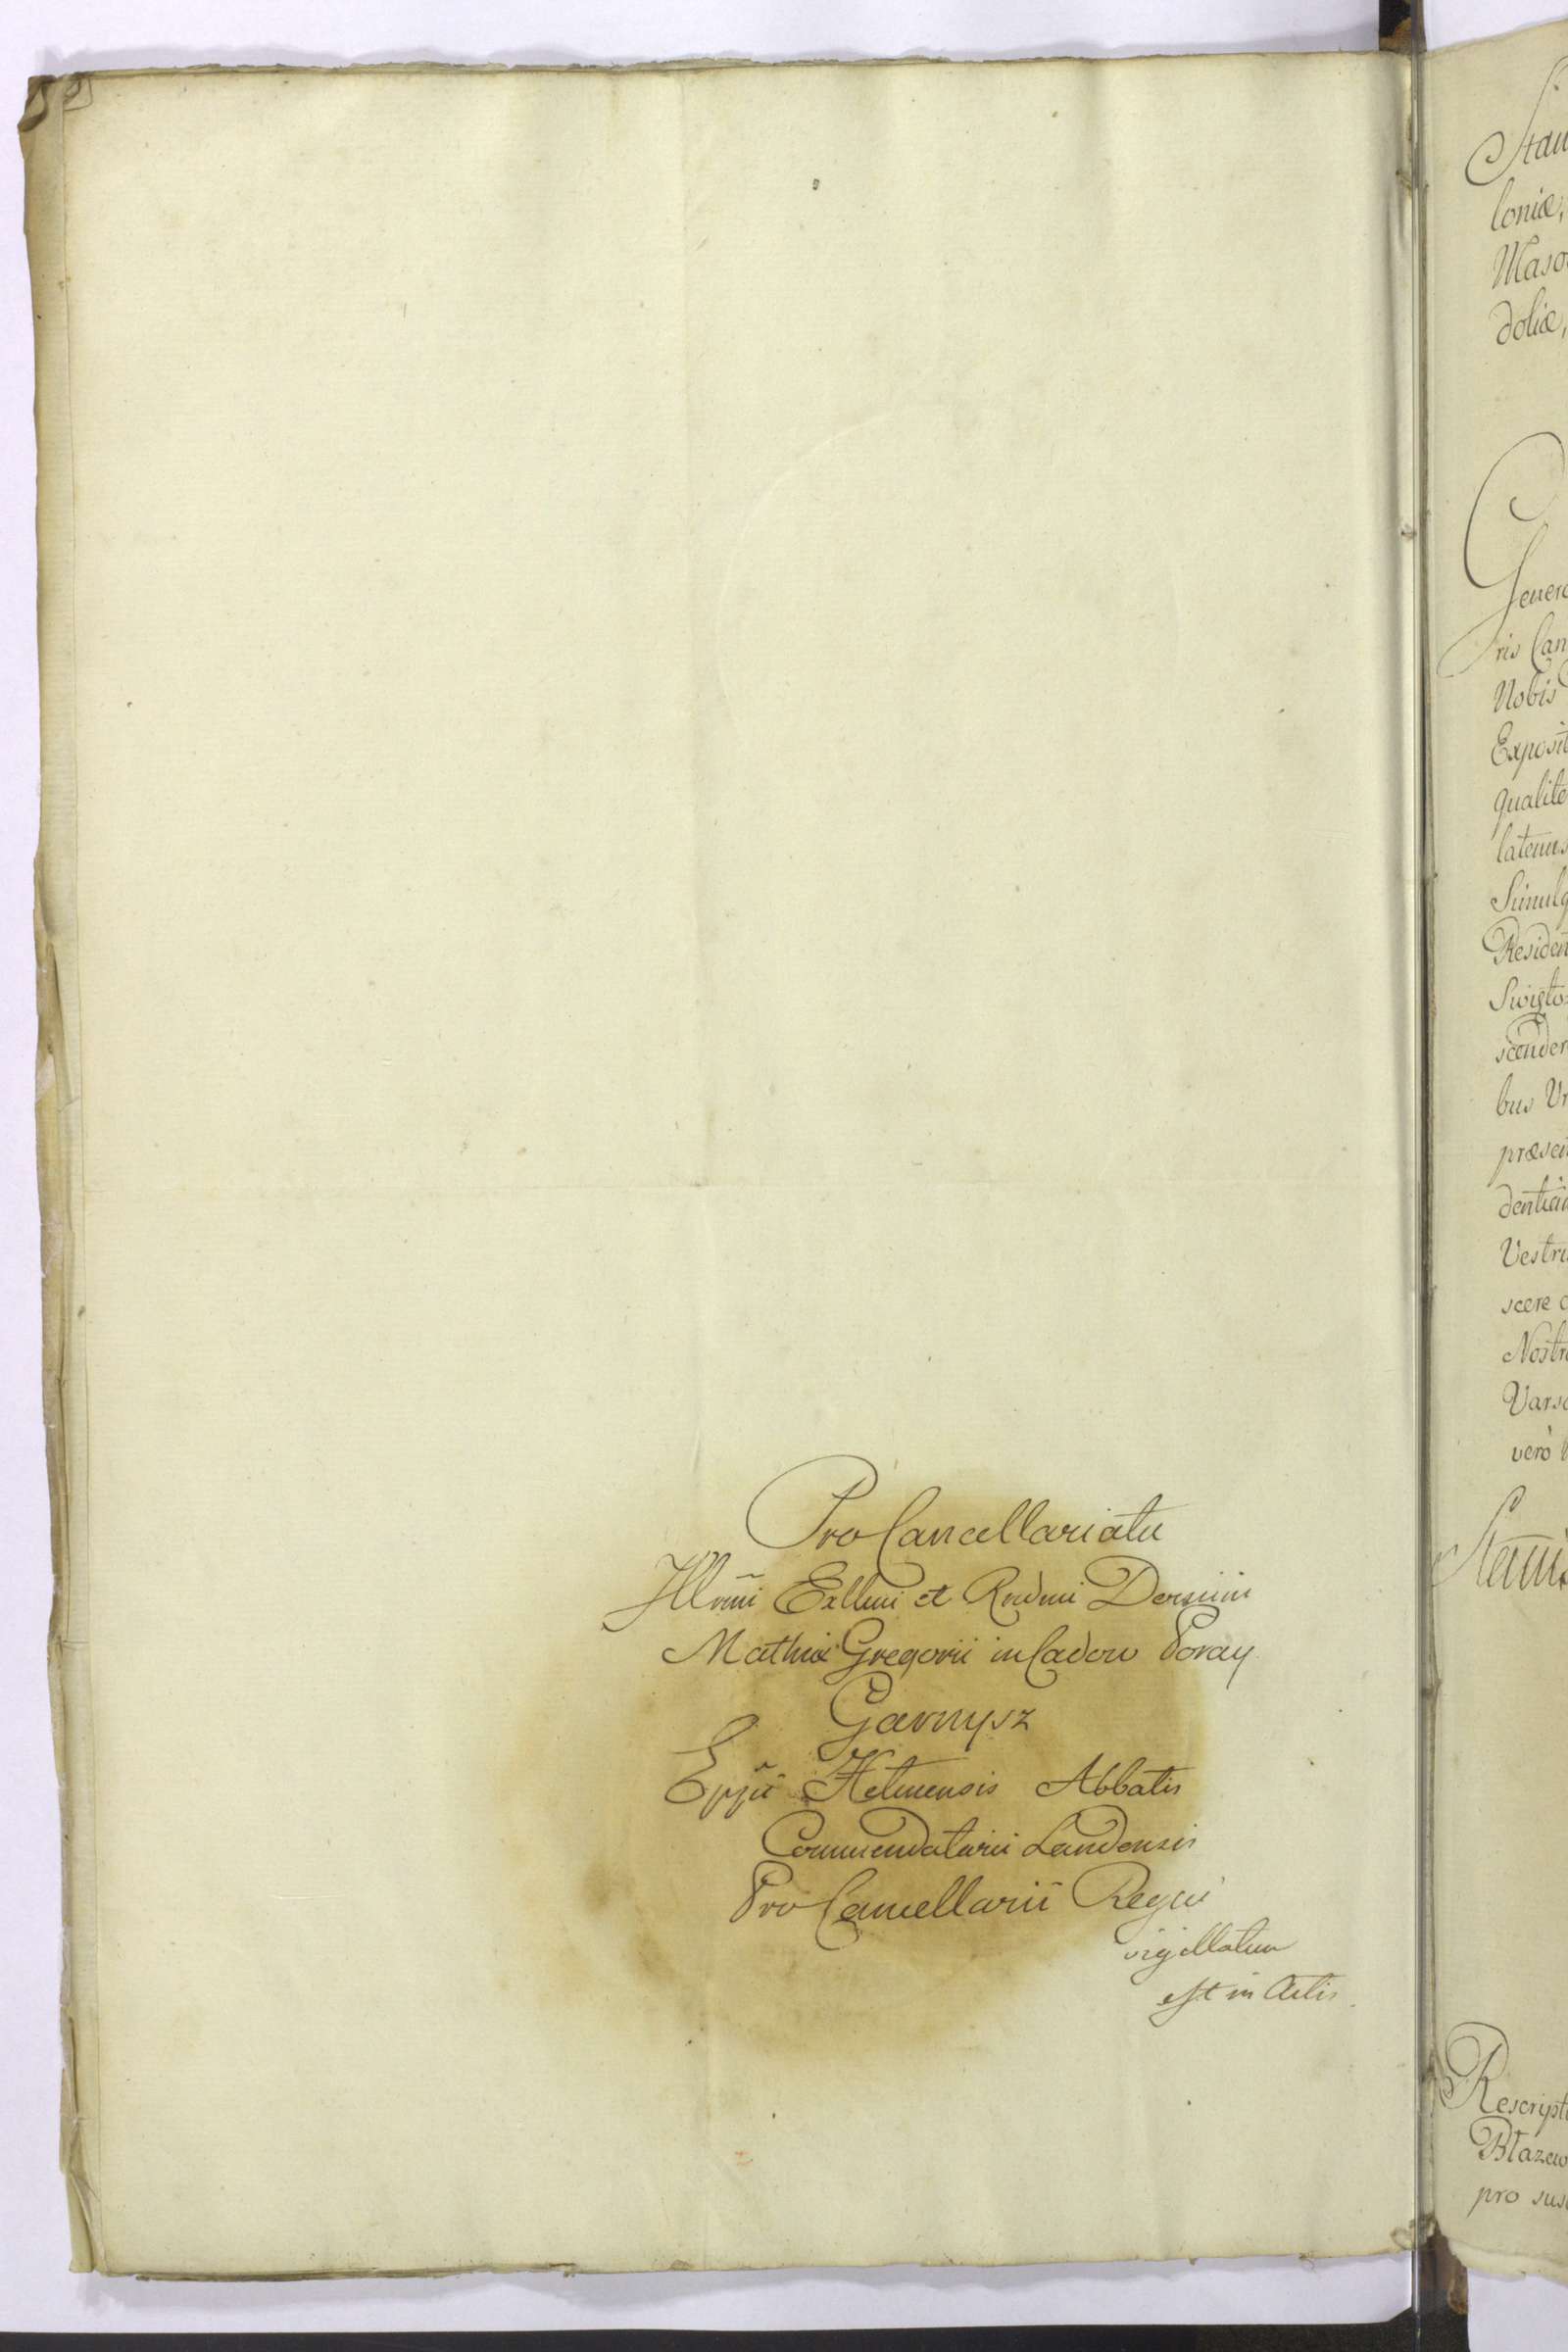 Pro Cancellariatu
Illm̃i Exllmi et Rndmi
Mathiæ Gregorii in Cadow Poray
Garnysz
Epp̃i Helmensis Abbatis
Commendatarii Landensis
Pro Cancellarii Regni
sigillatum
est in Actis.
Stan
loniæ,
Maso
doliæ,
Gener
ris Can
Nobis
Exposit
qualite
latenus
Simulq
Residen
Swięto=
scender
bus Vr
præsen
dentiam
Vestra
scere c
Nostr
Varso
verò
Stanis
Rescript
Błazew
pro sus